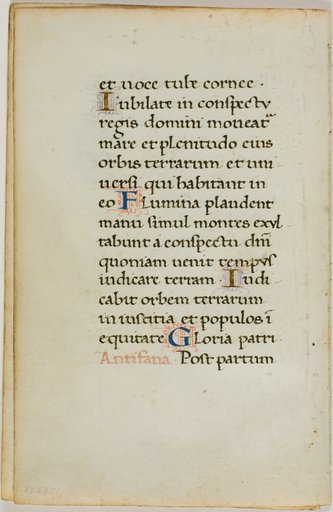 et uoce tube cornee ·
Iubilate in conspectu
regis domini moueat᷑
mare et plenitudo eius
orbis terrarum et uni
uersi qui habitant in
eo Flumina plaudent
manu simul montes exul
tabunt a conspectu dn̄i
quoniam uenit tempus
iudicare terram · Iudi
cabit orbem terrarum
in iusticia et populos ī
equitate Gloria patri
Antifana Post partum